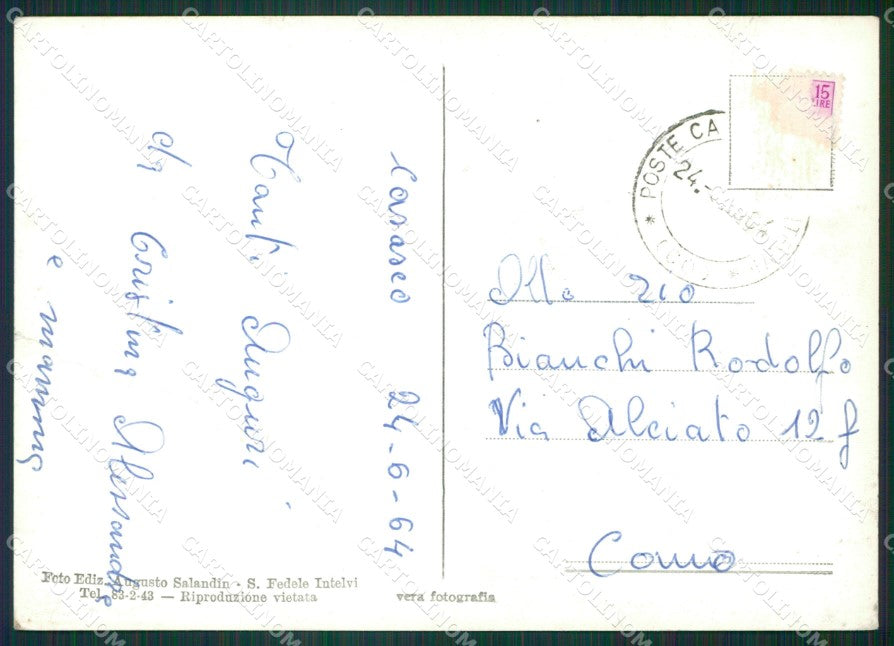 Casasco 24-6-64
Tanti Auguri
da Cristina Alessandra
e mamma
15
LIRE
POSTE CA
24.
Allo zio
Bianchi Rodolfo
Via Alciato 12 f
Como
Foto Ediz. Augusto Salandin - S. Fedele Intelvi
Tel. 83-2-43 — Riproduzione vietata
vera fotografia
CARTOLINOMANIA